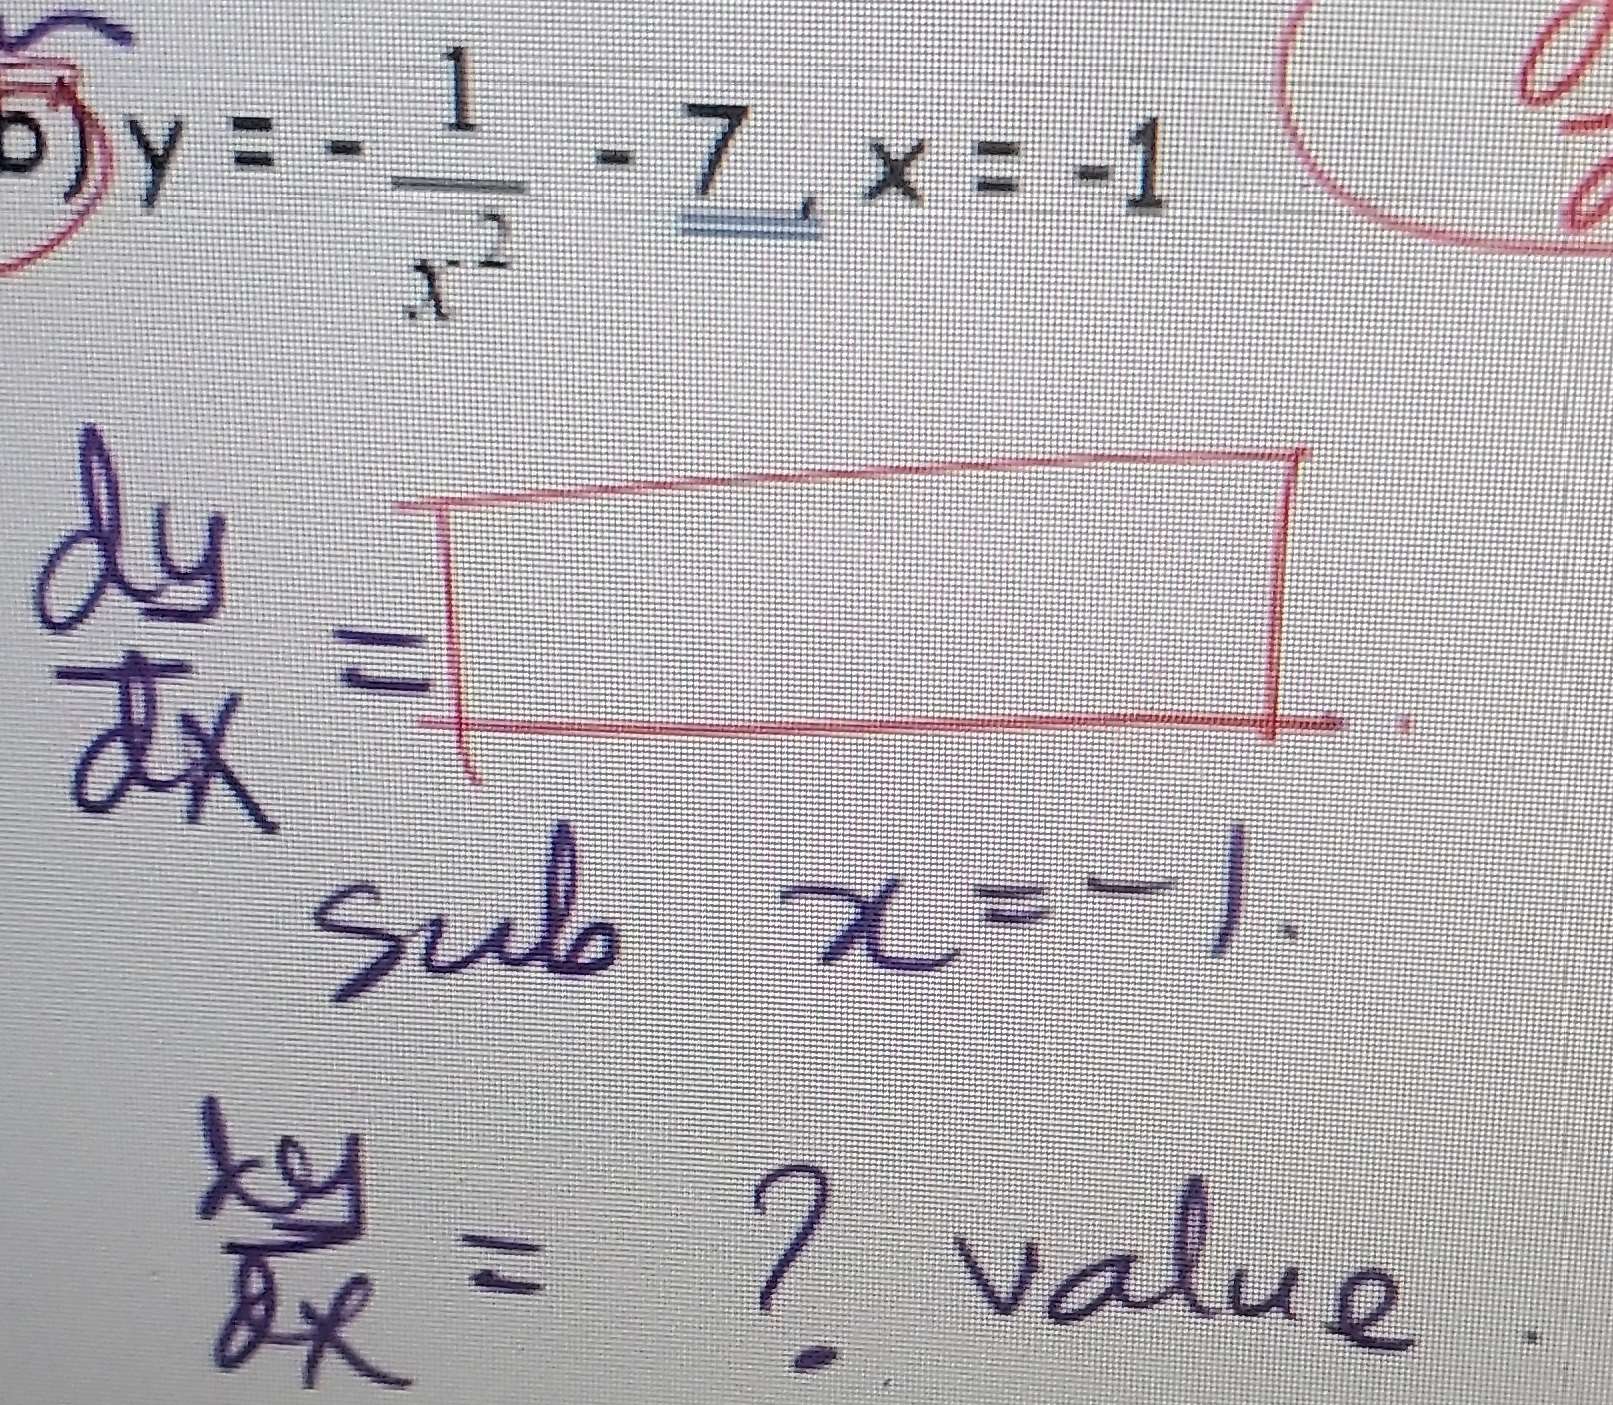 b) y = - 1/x² - 7, x = -1
dy/dx =
sub x = -1.
dy/dx = ? value.